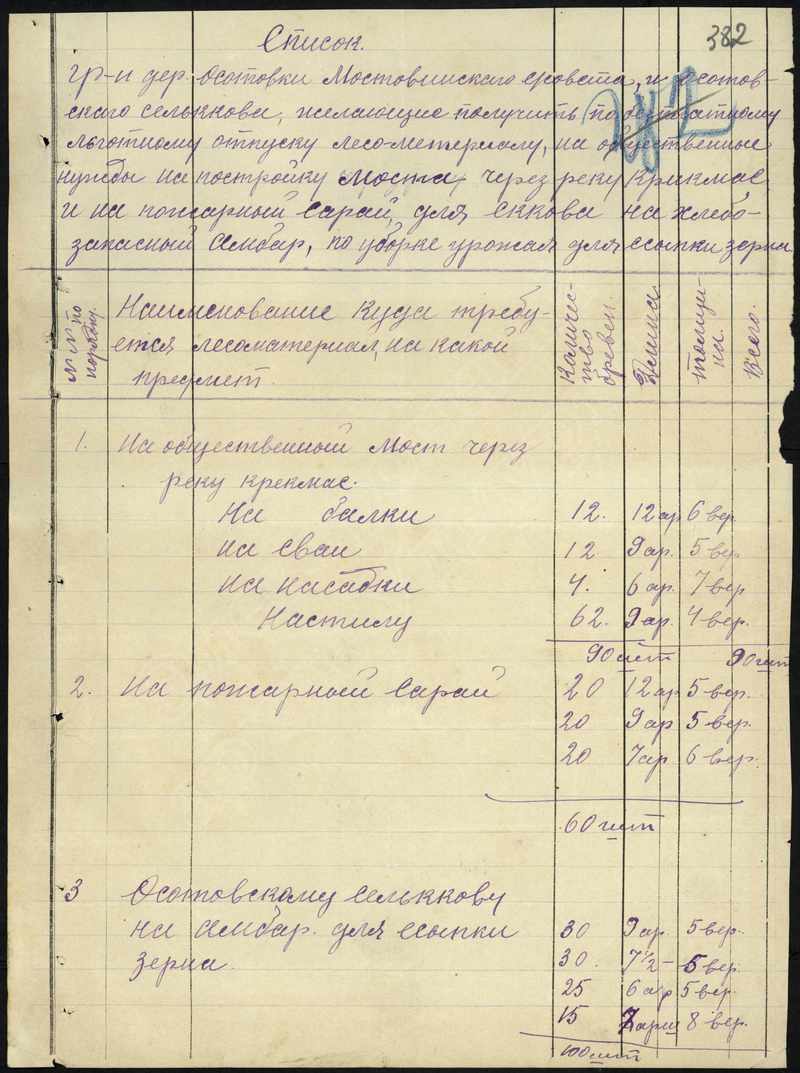 382
Список.
гр-н дер. Осотовки Мостовинскаго с/совета, и Осотов-
скаго селькнова, желающие получить по бесплатному
льготному отпуску лесо-метериалу, на общественные
нужды на постройку моста, через реку Крикмас
и на пожарный сарай, для еккова на хлебо-
запасный амбар, по уборке урожая для ссыпки зерна
№ № по порядку. Наименование куда требу-
ется лесоматериал, на какой
предмет. Количес-
тво
бревен. Длина. толщи-
на. Всего.
1. На общественный мост через
реку крекмас.
На балки 12. 12 ар 6 вер
на сваи 12 9 ар. 5 вер
на насадки 4. 6 ар. 7 вер
Настилу 62. 9 ар. 4 вер.
90 шт 90 шт
2. На пожарный сарай 20 12 ар 5 вер.
20 9 ар 5 вер.
20 7 ар 6 вер.
60 шт
3 Осотовскому селькнову 
на амбар. для ссыпки 30 9 ар 5 вер.
зерна. 30. 7 1/2 - 5 вер.
25 6 ар 5 вер.
15 7 арш 8 вер.
100 шт